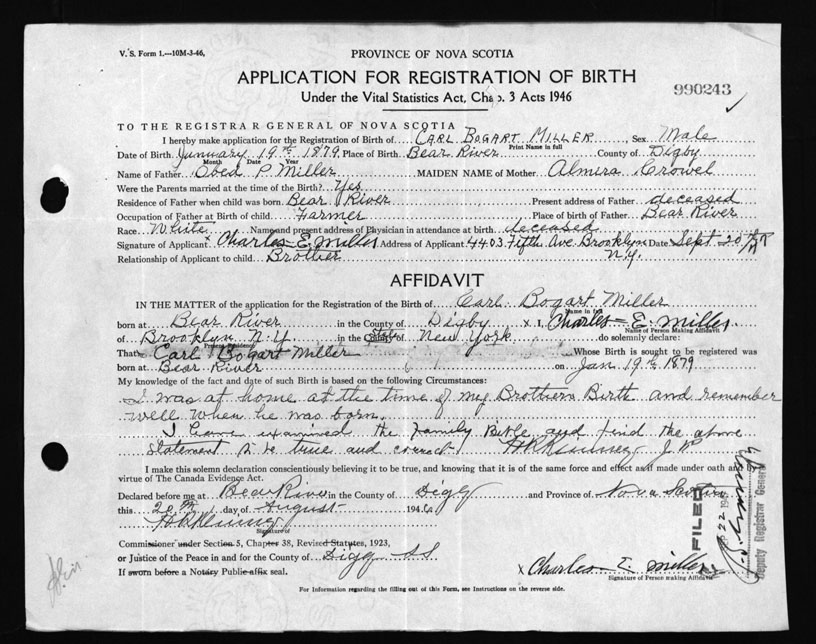 V.S. Form 1.—10M-3-46.
PROVINCE OF NOVA SCOTIA
APPLICATION FOR REGISTRATION OF BIRTH
Under the Vital Statistics Act, Chap. 3 Acts 1946
990243
TO THE REGISTRAR GENERAL OF NOVA SCOTIA
I hereby make application for the Registration of Birth of CARL BOGART MILLER, Sex Male
Print Name in full
Date of Birth January 19th 1879 Place of Birth Bear River County of Digby
Month Date Year
Name of Father Obed P. Miller MAIDEN NAME of Mother Almira Crowel
Were the Parents married at the time of the Birth? Yes
Residence of Father when child was born Bear River Present address of Father deceased
Occupation of Father at Birth of child Farmer Place of birth of Father Bear River
Race White Name and present address of Physician in attendance at birth deceased
Signature of Applicant Charles E. Miller Address of Applicant 4403 Fifth Ave Brooklyn Date Sept. 20
Relationship of Applicant to Child Brother N.Y.
AFFIDAVIT
IN THE MATTER of the application for the Registration of the Birth of Carl Bogart Miller
Name in full
born at Bear River in the County of Digby x I, Charles E. Miller
Name of Person Making Affidavit
of Brooklyn N.Y. in the County State of New York do solemnly declare:
Present Residence
That Carl Bogart Miller Whose Birth is sought to be registered was
born at Bear River on Jan 19th 1879
My knowledge of the fact and date of such Birth is based on the following Circumstances:
I was at home at the time of my Brothers Birth and remember
well when he was born.
I have examined the Family Bible and find the above
statement to be true and correct J.P.
I make this solemn declaration conscientiously believing it to be true, and knowing that it is of the same force and effect as if made under oath and by
virtue of The Canada Evidence Act.
Declared before me at Bear River in the County of Digby and Province of Nova Scotia
this 20th day of August 194
Signature of
Commissioner under Section 5, Chapter 38, Revised Statutes, 1923,
or Justice of the Peace in and for the County of Digby SS
If sworn before a Notary Public affix seal.
x Charles E. Miller
Signature of Person making Affidavit
For Information regarding the filling out of this Form, see Instructions on the reverse side.
FILED
22 194
Deputy Registrar General